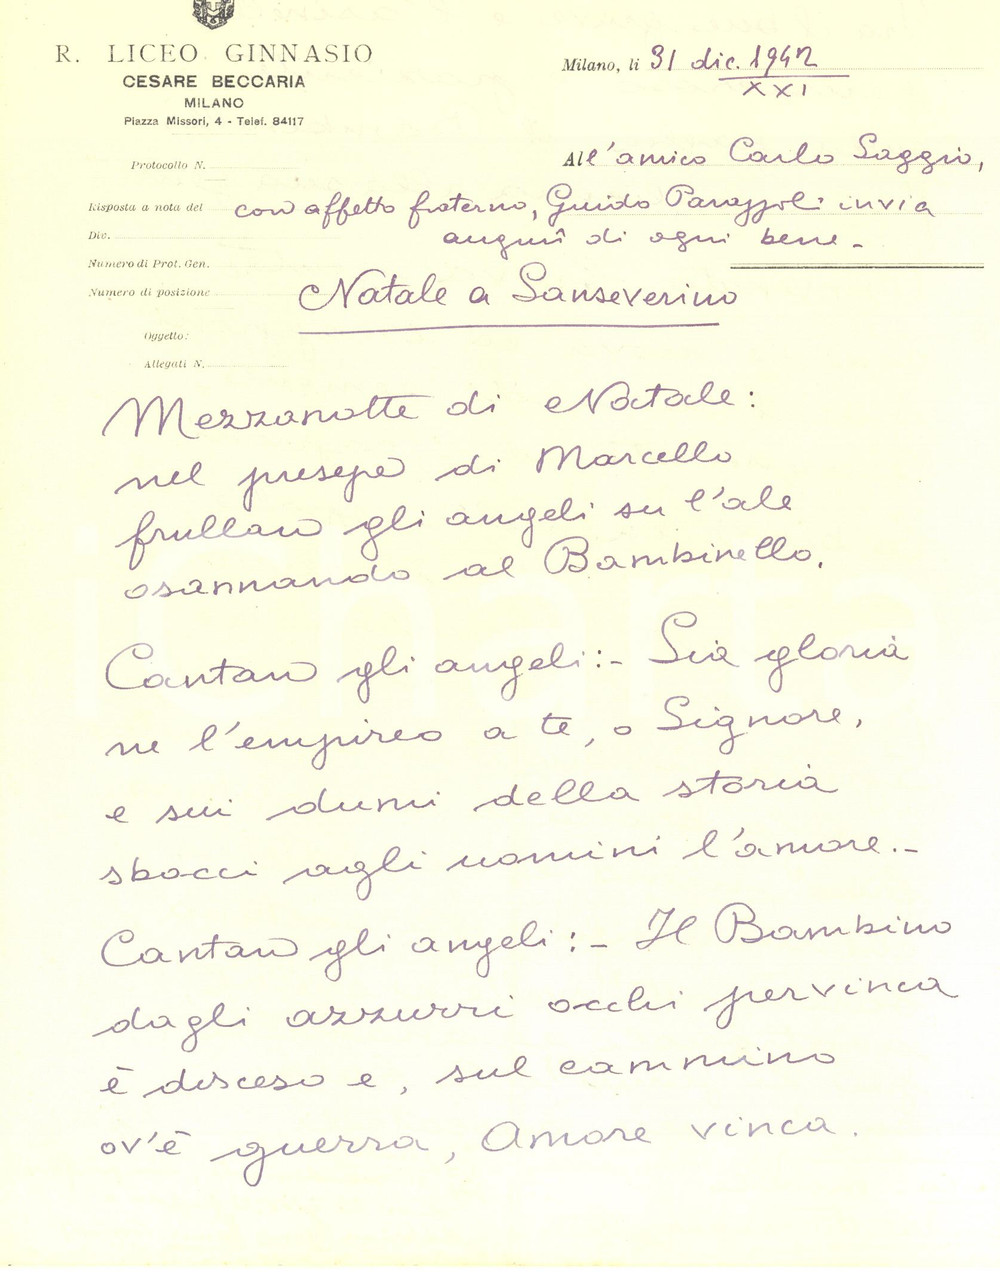 R. LICEO GINNASIO
CESARE BECCARIA
MILANO
Piazza Missori, 4 - Telef. 84117
Milano, li 31 dic. 1942
XXI
Protocollo N.
All'amico Carlo Saggio,
Risposta a nota del
con affetto fraterno, Guido Parazzoli invia
Div.
augurî di ogni bene -
Numero di Prot. Gen.
Numero di posizione
Natale a Sanseverino
Oggetto:
Allegati N.
Mezzanotte di Natale:
nel presepe di Marcello
frullan gli angeli su l'ale
osannando al Bambinello.
Cantan gli angeli: - Sia gloria
ne l'empireo a te, o Signore,
e sui dumi della storia
sbocci agli uomini l'amore. -
Cantan gli angeli: - Il Bambino
dagli azzurri occhi pervinca
è disceso e, sul cammino
ov'è guerra, Amore vinca.